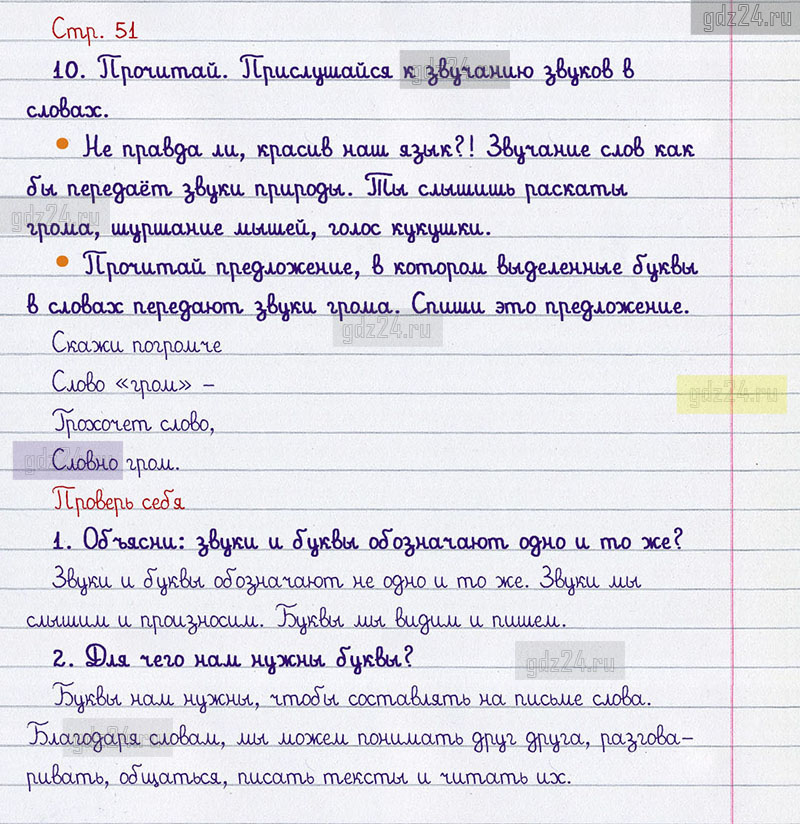 gdz24.ru
Стр. 51
10. Прочитай. Прислушайся к звучанию звуков в
словах.
• Не правда ли, красив наш язык?! Звучание слов как
бы передаёт звуки природы. Ты слышишь раскаты
грома, шуршание мышей, голос кукушки.
• Прочитай предложение, в котором выделенные буквы
в словах передают звуки грома. Спиши это предложение.
Скажи погромче
Слово «гром» –
Грохочет слово,
Словно гром.
Проверь себя
1. Объясни: звуки и буквы обозначают одно и то же?
Звуки и буквы обозначают не одно и то же. Звуки мы
слышим и произносим. Буквы мы видим и пишем.
2. Для чего нам нужны буквы?
Буквы нам нужны, чтобы составлять на письме слова.
Благодаря словам, мы можем понимать друг друга, разгова-
ривать, общаться, писать тексты и читать их.
gdz24.ru
gdz24.ru
gdz24.ru
gdz24.ru
gdz24.ru
gdz24.ru
gdz24.ru